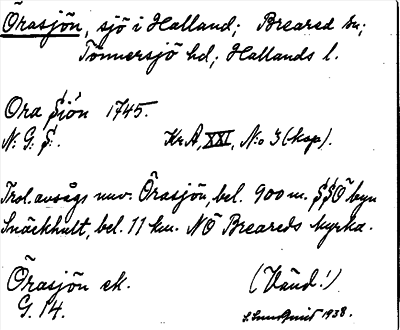 Örasjön, sjö i Halland; Breared sn;
Tönnersjö hd; Hallands l.
Ora Siön 1745.
N: G: S: Kr. A, XXI, N:o 3 (kop).
Trol. avsågs nuv. Örasjön, bel. 900 m. SSÖ byn
Snäckhult, bel. 11 km. NÖ Breareds kyrka.
Örasjön ek. (Vänd!)
G. 14. S. Lundquist 1938.